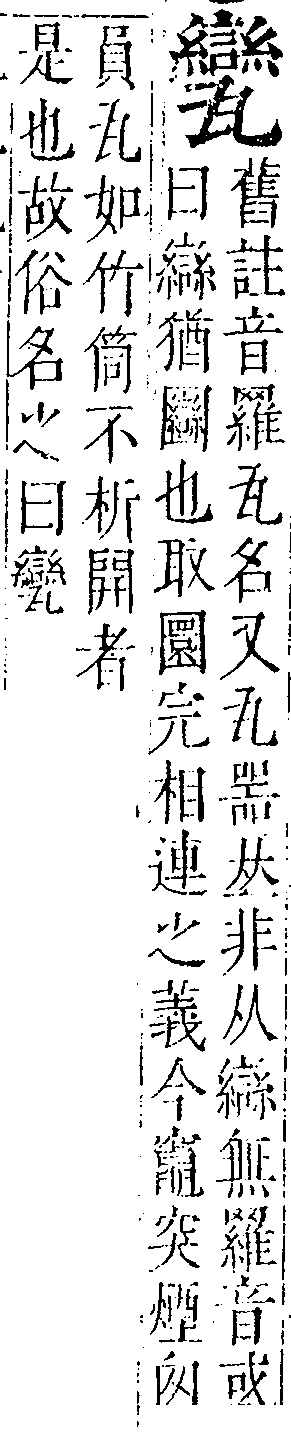 舊註音羅瓦名又瓦器𠀤非从䜌無羅音或
曰䜌猶圝也取圜完相連之義今竈突煙囪
員瓦如竹筒不析開者
是也故俗名之曰